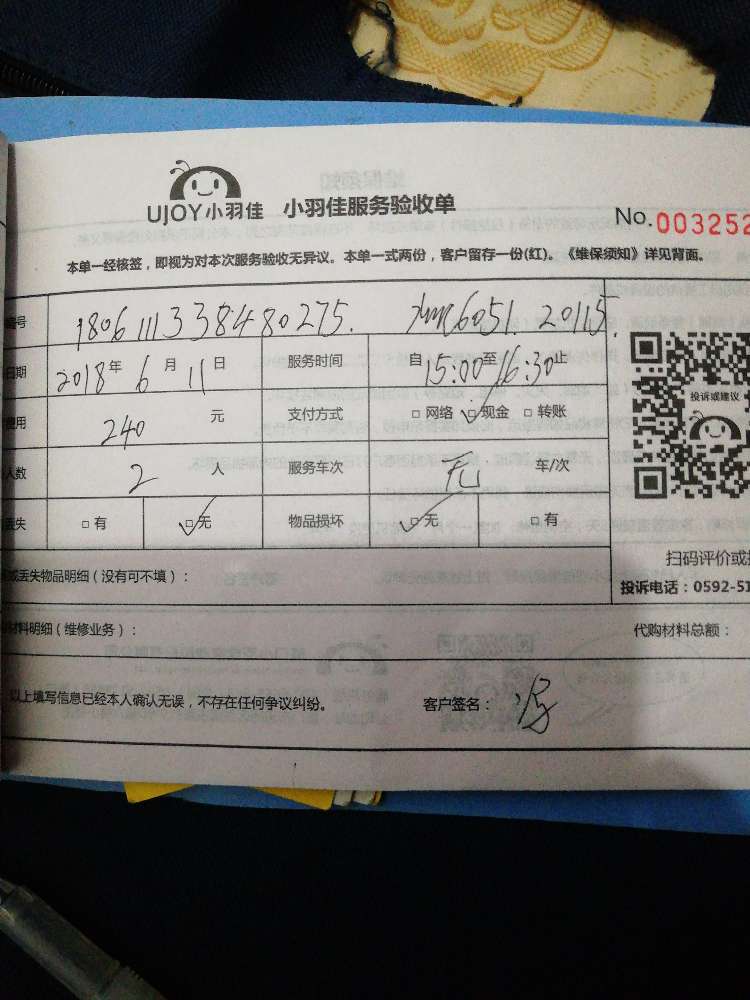 UJOY小羽佳 小羽佳服务验收单
No.003252
本单一经核签，即视为对本次服务验收无异议。本单一式两份，客户留存一份(红)。《维保须知》详见背面。
编号 1806111338480275. 6051.20115.
日期 2018年6月11日 服务时间 自15:00至16:30止
费用 240元 支付方式 □网络 □现金 □转账
人数 2人 服务车次 无 车/次
丢失 □有 □无 物品损坏 □无 □有
投诉或建议
扫码评价或
或丢失物品明细（没有可不填）：
投诉电话：0592-51
材料明细（维修业务）： 代购材料总额：
以上填写信息已经本人确认无误，不存在任何争议纠纷。 客户签名：